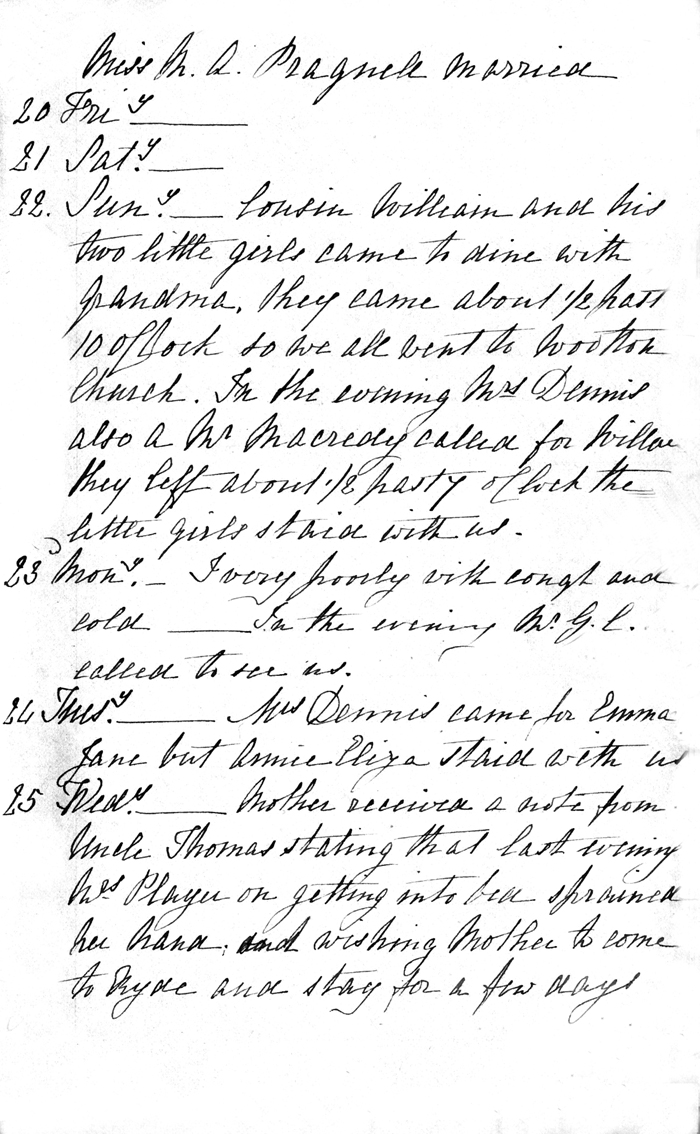 Miss M. A. Pragnell married
20 Friy
21 Saty.
22. Suny. Cousin William and his
two little girls came to dine with
Grandma, they came about 1/2 past
10 o/Clock so we all went to Wootton
Church. In the evening Mrs Dennis
also a Mr Macredy called for Willm
they left about 1/2 past 7 o/Clock the
little girls staid with us.
23 Mony. I very poorly with cough and
cold In the evening Mr. G. C.
called to see us.
24 Tuesy. Mrs Dennis came for Emma
Jane but Annie Eliza staid with us
25 Wedy. Mother received a note from
Uncle Thomas stating that last evening
Mrs Player on getting into bed sprained
her hand, and wishing Mother to come
to Ryde and stay for a few days